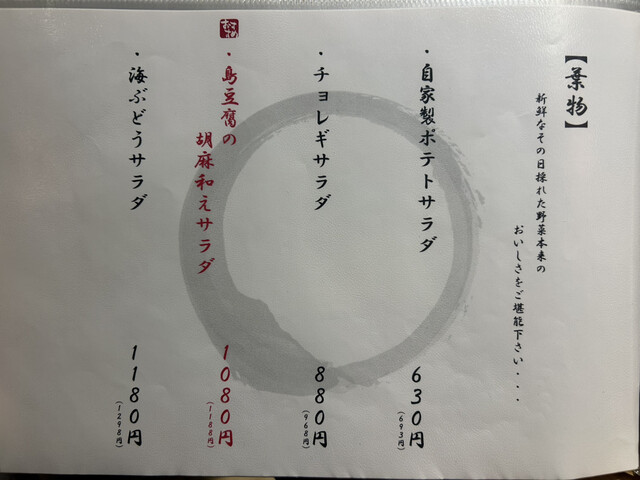 【葉物】
新鮮なその日採れた野菜本来の
おいしさをご堪能下さい・・・・
・自家製ポテトサラダ
630円
(693円)
・チョレギサラダ
880円
(968円)
・島豆腐の
胡麻和えサラダ
1080円
(1188円)
・海ぶどうサラダ
1180円
(1298円)